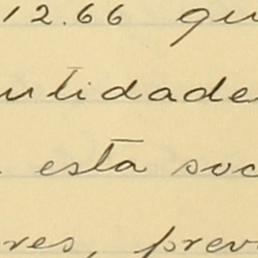 12.66 qu
ntidade
a esta soc
res, prev